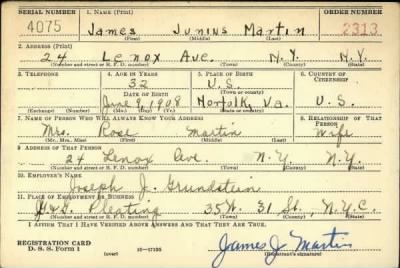 SERIAL NUMBER 1. NAME (Print) ORDER NUMBER
4075 James Junius Martin 2313
(First) (Middle) (Last)
2. ADDRESS (Print)
24 Lenox Ave. N.Y. N.Y.
(Number and street or R. F. D. number) (Town) (County) (State)
3. TELEPHONE 4. AGE IN YEARS 5. PLACE OF BIRTH 6. COUNTRY OF CITIZENSHIP
32 U.S.
DATE OF BIRTH (Town or county)
June 9, 1908 Norfolk, Va. U.S.
(Exchange) (Number) (Mo.) (Day) (Yr.) (State or country)
7. NAME OF PERSON WHO WILL ALWAYS KNOW YOUR ADDRESS 8. RELATIONSHIP OF THAT PERSON
Mrs. Rose Martin Wife
(Mr., Mrs., Miss) (First) (Middle) (Last)
9. ADDRESS OF THAT PERSON
24 Lenox Ave. N.Y. N.Y.
(Number and street or R. F. D. number) (Town) (County) (State)
10. EMPLOYER'S NAME
Joseph J. Grundstein
11. PLACE OF EMPLOYMENT OR BUSINESS
Pleating 35 W. 31 St., N.Y.C.
(Number and street or R. F. D. number) (Town) (County) (State)
I AFFIRM THAT I HAVE VERIFIED ABOVE ANSWERS AND THAT THEY ARE TRUE.
REGISTRATION CARD
D. S. S. Form 1 (over) 16—17105 James J Martin
(Registrant's signature)